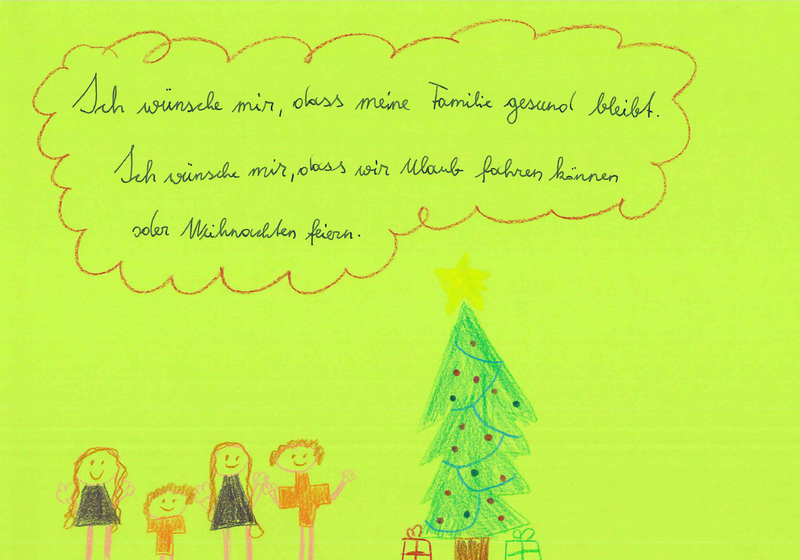 Ich wünsche mir, dass meine Familie gesund bleibt.
Ich wünsche mir, dass wir Ulaub fahren können
oder Weihnachten feiern.